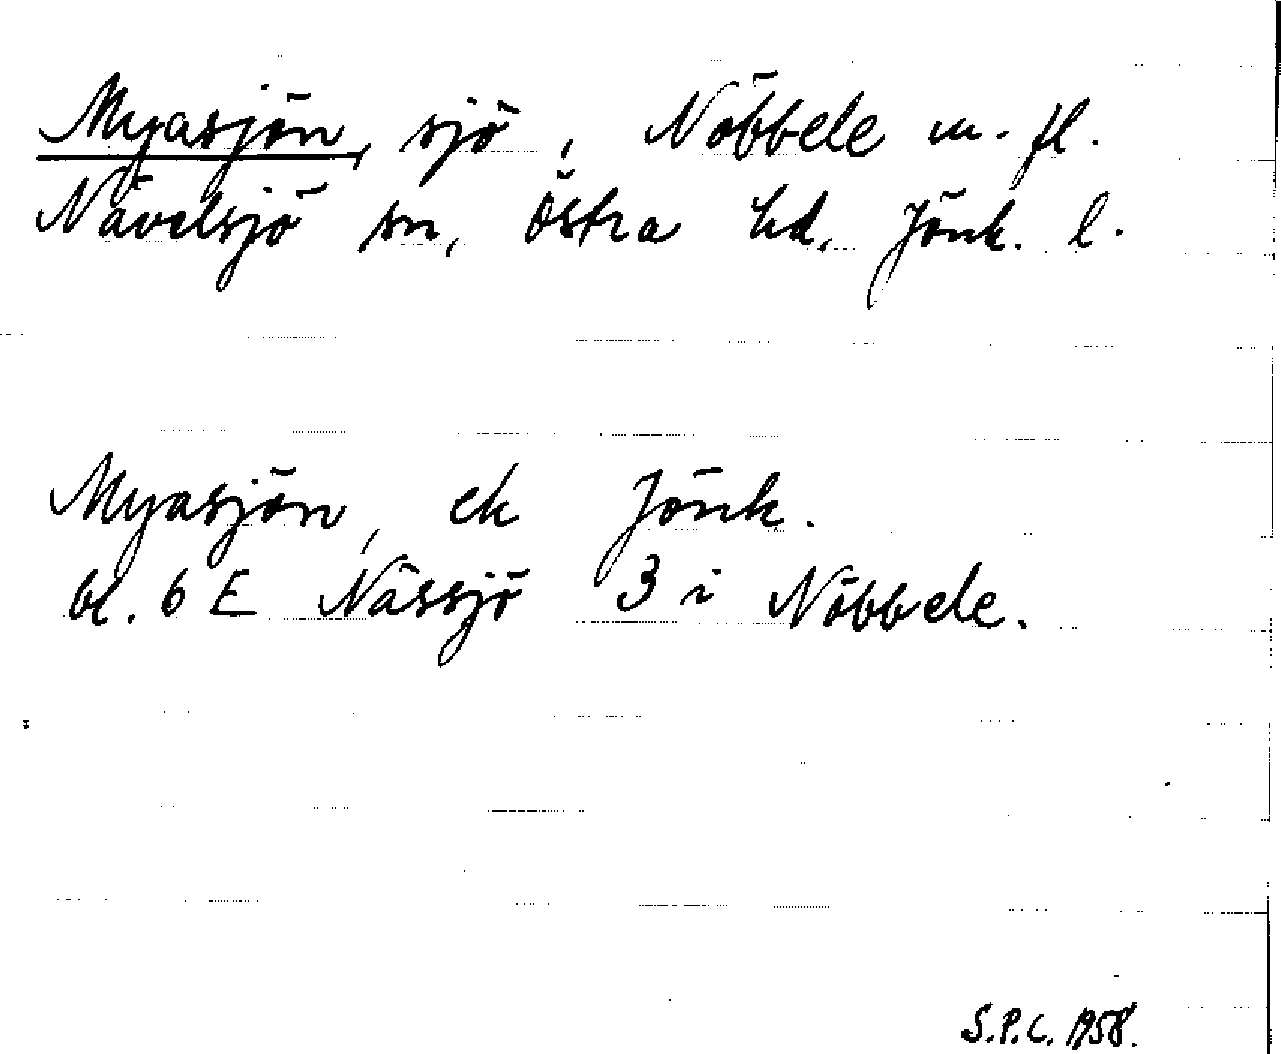 Myasjön, sjö, Nöbbele m. fl.
Nävelsjö sn, Östra hd, Jönk. l.
Myasjön, ek Jönk.
bl. 6 E Nässjö 3 i Nöbbele.
S.P.C. 1958.